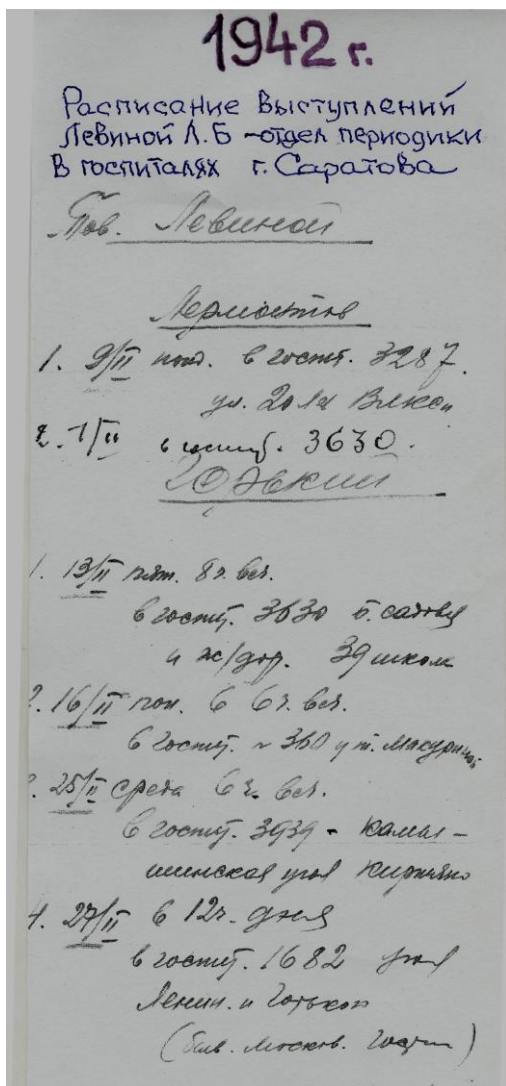 1942 г.
Расписание Выступлений
Левиной Л.Б - отдел периодики
В госпиталях г. Саратова
Тов. Левиной
Лермонтов
1. 9/II пон. в госпит. 3287.
ул. 20 лет Влксм
2. 7/II в госпит. 3630.
Горький
1. 13/II пят. 8 ч. веч.
в госпит. 3630 б. садовая
и ж/дор. 39 школа
2. 16/II пон. в 6 ч. веч.
в госпит. № 360 у т.
25/II среда 6 ч. веч.
в госпит. 3939 - Камы-
шинская угол
4. 27/II в 12 ч. дня
в госпит. 1682 угол
Ленин. и Горьков
(быв. Москов. Гост)